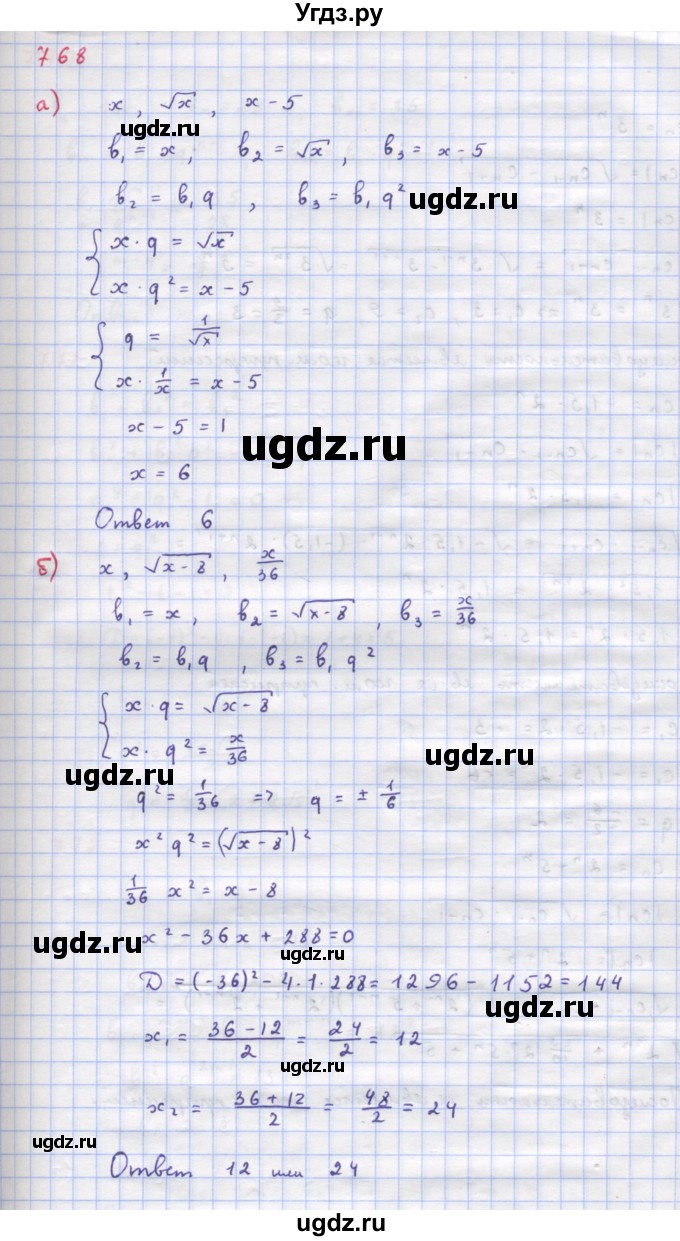 Угдз.ру
768
а) x, √x, x-5
ugdz.ru
b₁ = x, b₂ = √x, b₃ = x-5
b₂ = b₁q, b₃ = b₁q² ugdz.ru
x·q = √x
x·q² = x-5
q = 1/√x
x·1/x = x-5
x-5=1
ugdz.ru
x = 6
Ответ 6
б) x, √(x-8), x/36
ugdz.ru
b₁ = x, b₂ = √(x-8), b₃ = x/36
b₂ = b₁q, b₃ = b₁q²
x·q = √(x-8)
x·q² = x/36
ugdz.ru
ugdz.ru
q² = 1/36 => q = ± 1/6
x²q² = (√(x-8))²
1/36 x² = x-8
ugdz.ru
x² - 36x + 288 = 0
D = (-36)² - 4·1·288 = 1296 - 1152 = 144
ugdz.ru
x₁ = (36-12)/2 = 24/2 = 12
ugdz.ru
x₂ = (36+12)/2 = 48/2 = 24
ugdz.ru
ugdz.ru
Ответ 12 или 24
ugdz.ru